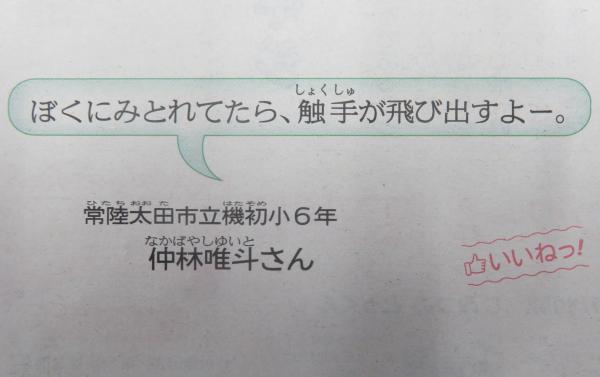 しょくしゅ
ぼくにみとれてたら、触手が飛び出すよー。
ひたちおおた はたぞめ
常陸太田市立機初小6年
なかばやしゆいと
仲林唯斗さん
いいねっ!